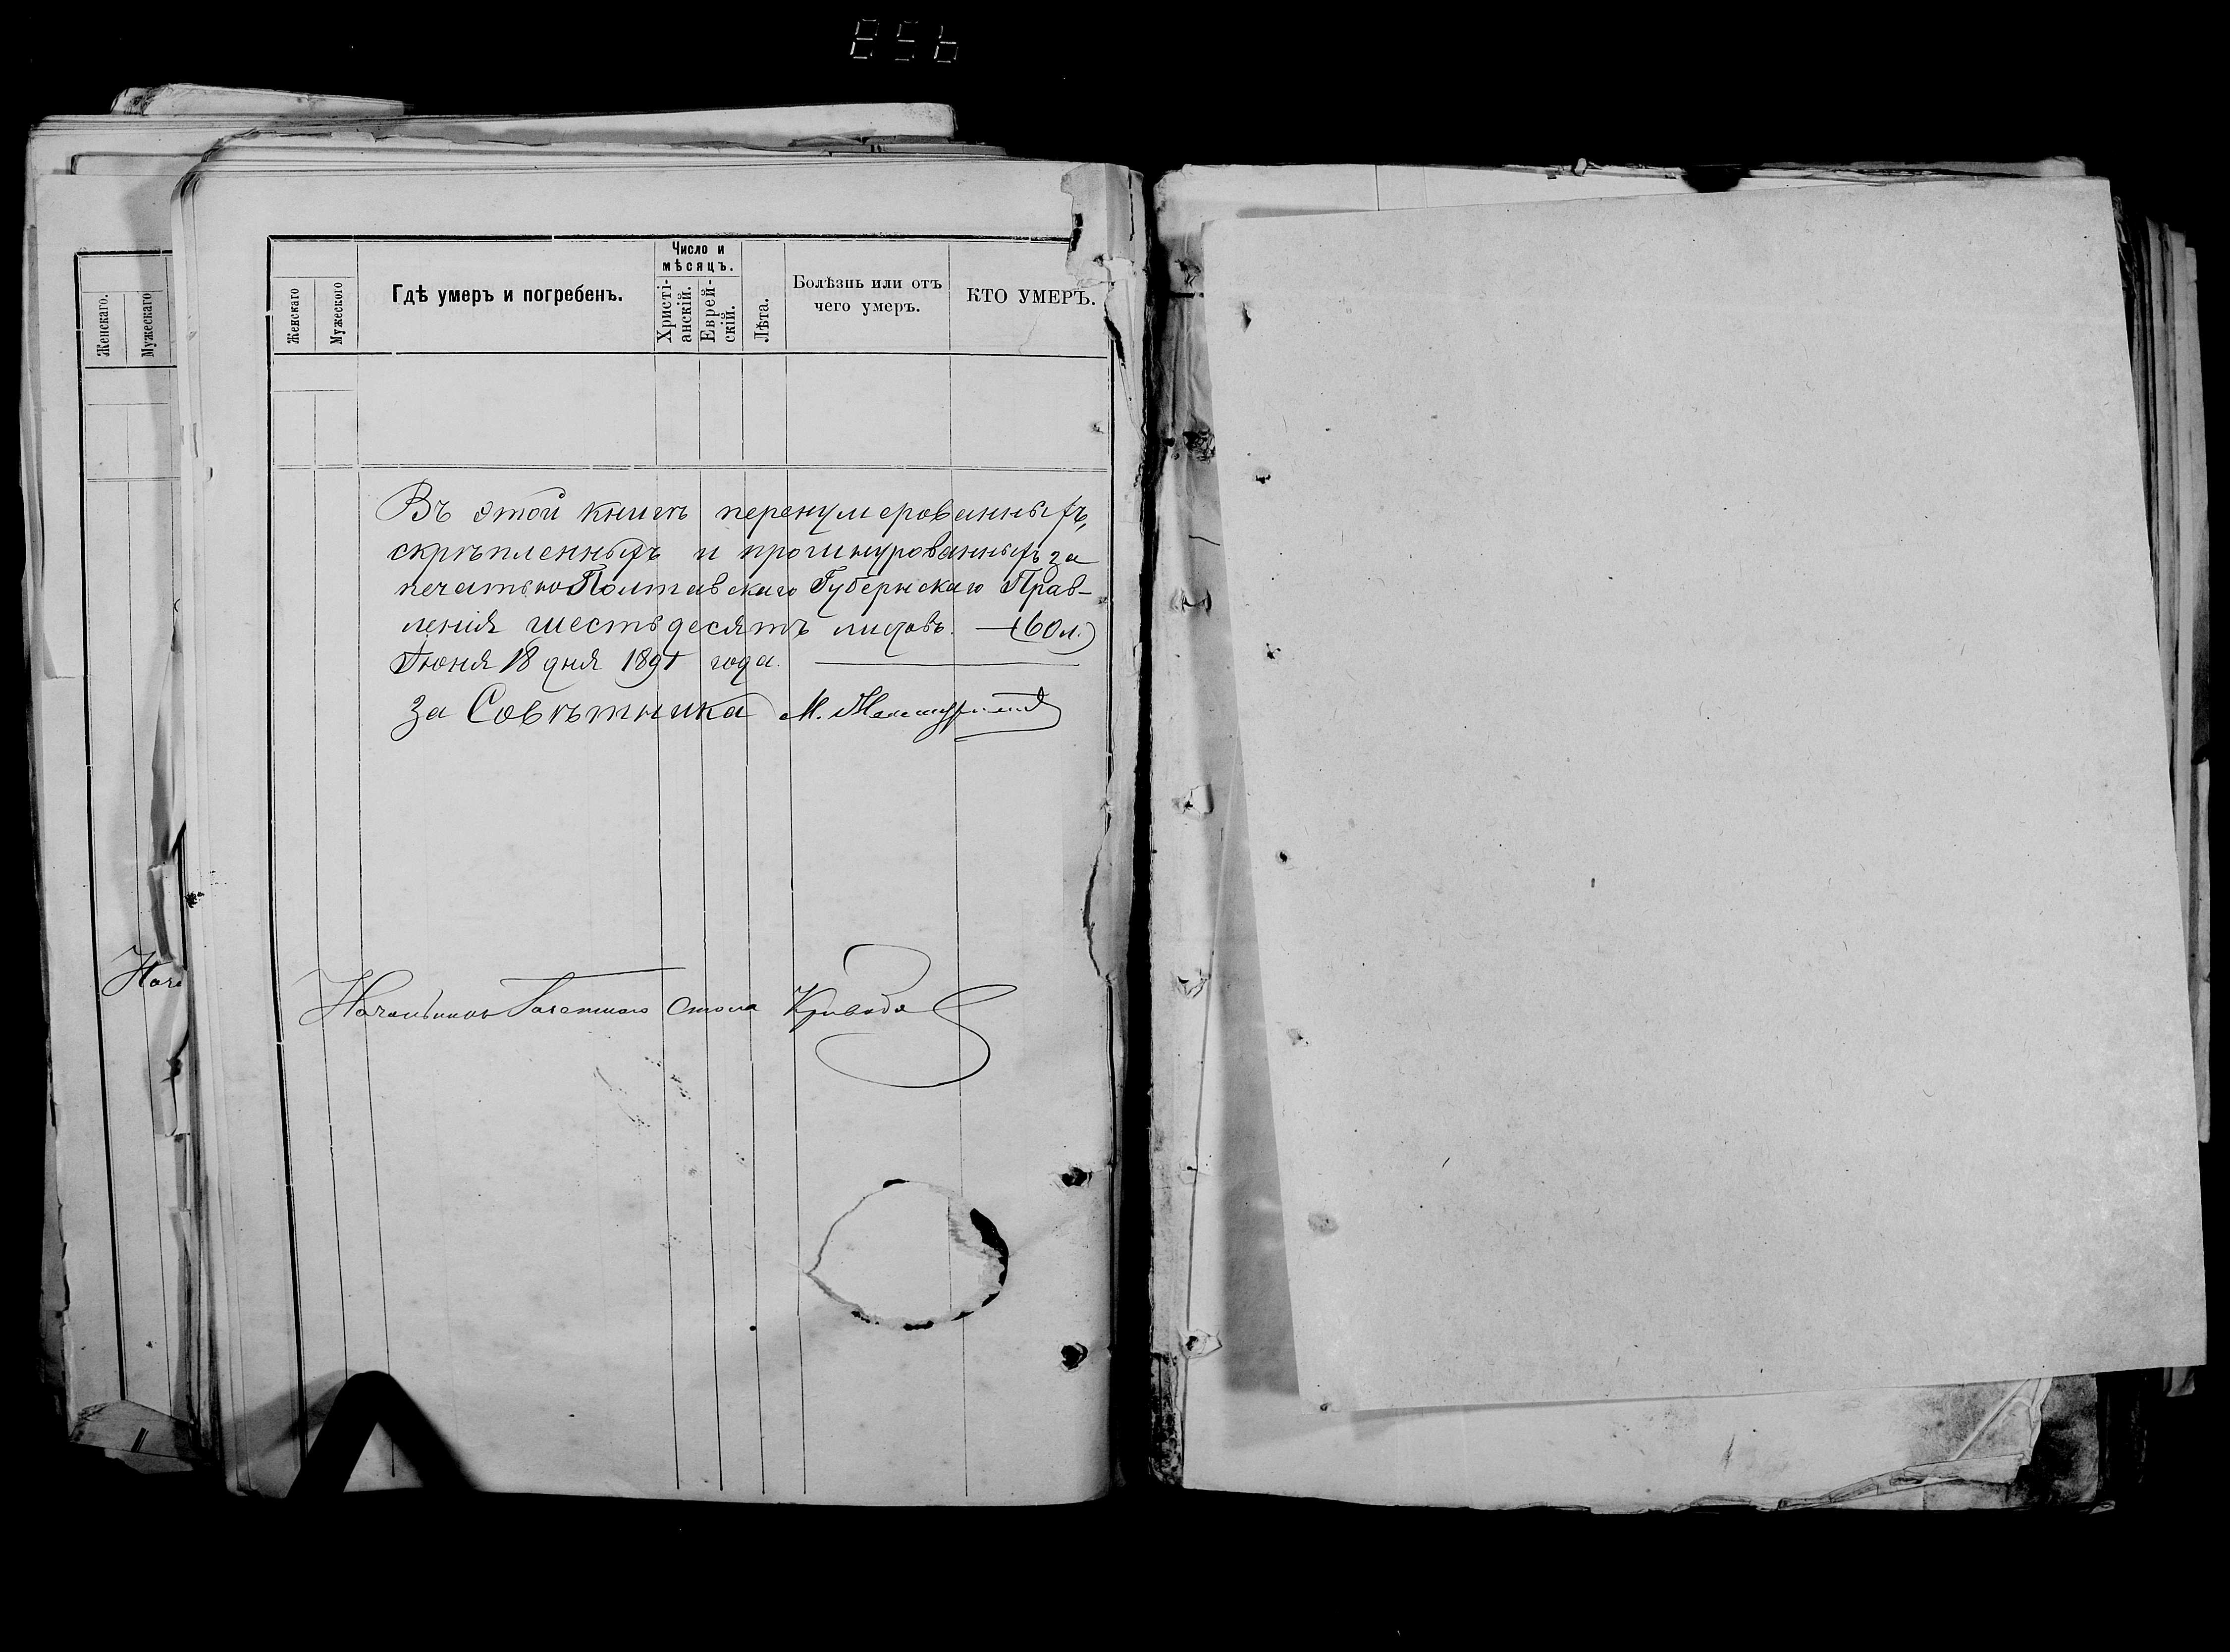 856
Женскаго.
Мужескаго
Женскаго
Мужеского
Гдѣ умеръ и погребенъ.
Число и
мѣсяцъ.
Христі-
анскій.
Еврей-
скій.
Лѣта.
Болѣзнь или отъ
чего умеръ.
КТО УМЕРЪ.
Въ этой книгѣ перенумерованныхъ,
скрѣпленныхъ и прошнурованныхъ за
печатью Полтавскаго Губернскаго Прав-
ленія шестьдесятъ листовъ. — (60 л.)
Іюня 18 дня 1891 года.
За Совѣтника М.
Нача
Начальникъ Газетнаго Стола Кривода